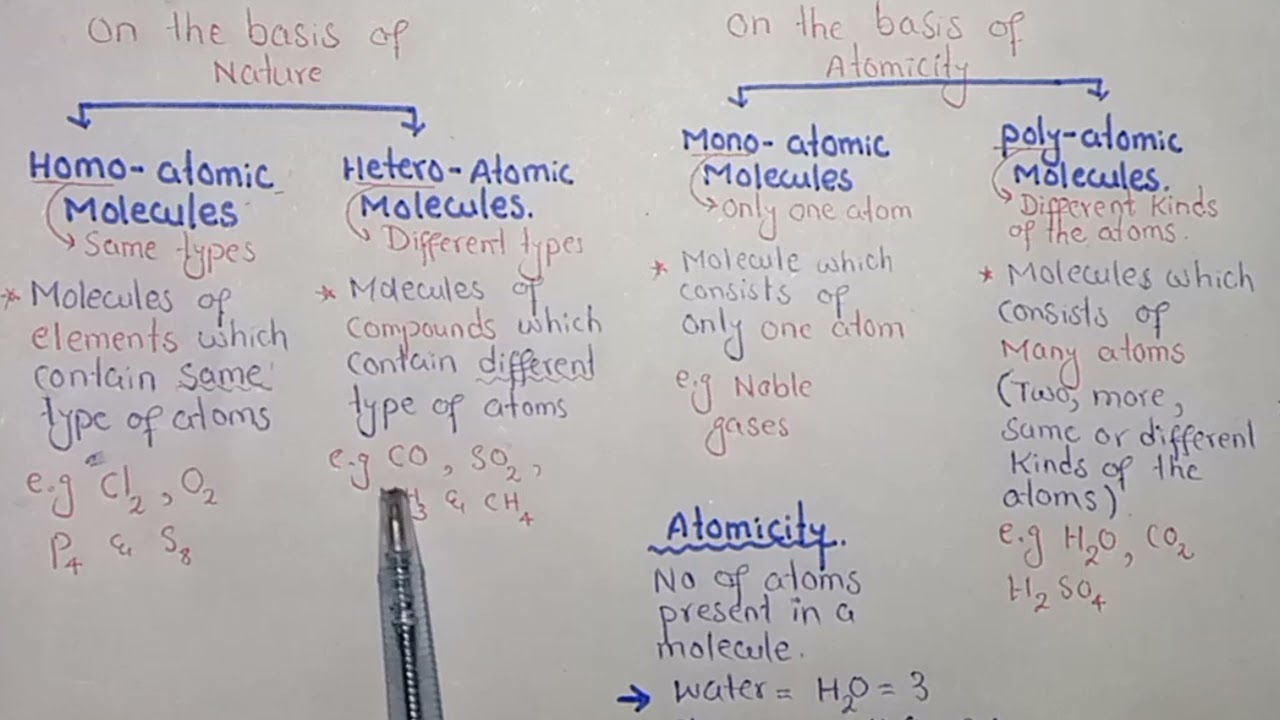 On the basis of
Nature
Homo-atomic
Molecules
Same types
* Molecules of
elements which
contain same
type of atoms
e.g Cl₂, O₂
P₄ & S₈
Hetero-Atomic
Molecules.
Different types
* Molecules of
compounds which
contain different
type of atoms
e.g CO, SO₂,
H₃ & CH₄
On the basis of
Atomicity
Mono-atomic
Molecules
Only one atom
* Molecule which
consists of
only one atom
e.g Noble
gases
Poly-atomic
Molecules.
Different Kinds
of the atoms.
* Molecules which
consists of
Many atoms
(Two, more,
Same or different
Kinds of the
atoms)
e.g H₂O, CO₂
H₂SO₄
Atomicity.
No of atoms
present in a
molecule.
→ water = H₂O = 3